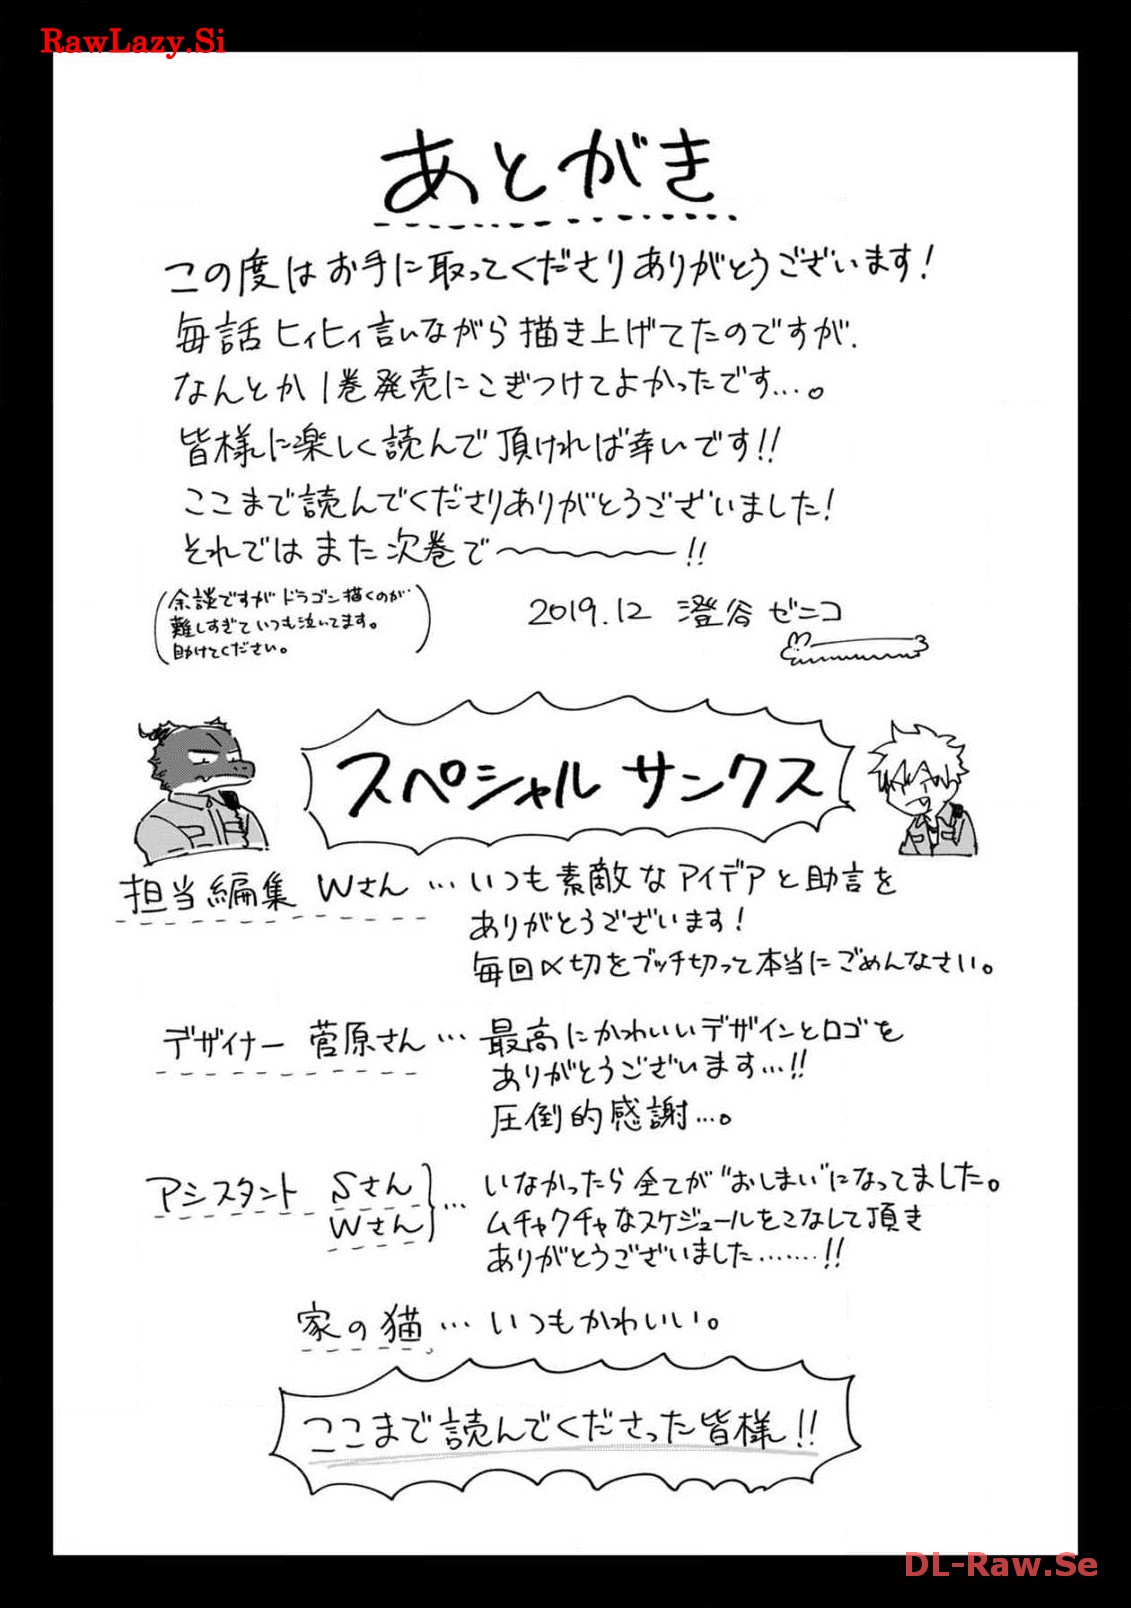 RawLazy.Si
あとがき
この度はお手に取ってくださりありがとうございます!
毎話ヒィヒィ言いながら描き上げてたのですが、
なんとか1巻発売にこぎつけてよかったです…。
皆様に楽しく読んで頂ければ幸いです!!
ここまで読んでくださりありがとうございました!
それではまた次巻で〜〜〜〜〜!!
(余談ですがドラゴン描くのが
難しすぎていつも泣いてます。
助けてください。)
2019.12 澄谷ゼニコ
スペシャルサンクス
担当編集 Wさん …いつも素敵なアイデアと助言を
ありがとうございます!
毎回〆切をブッチ切って本当にごめんなさい。
デザイナー 菅原さん…最高にかわいいデザインとロゴを
ありがとうございます…!!
圧倒的感謝…。
アシスタント Sさん
Wさん
…いなかったら全てが"おしまい"になってました。
ムチャクチャなスケジュールをこなして頂き
ありがとうございました………!!
家の猫…いつもかわいい。
ここまで読んでくださった皆様!!
DL-Raw.Se